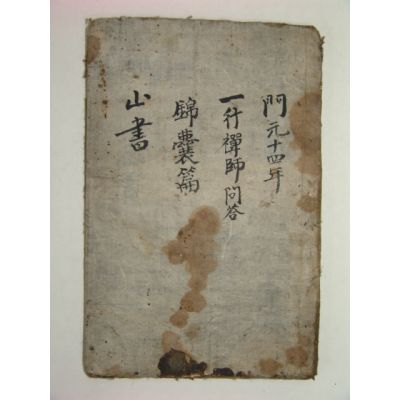 門元十四年
一行禪師問答
錦囊篇
山書